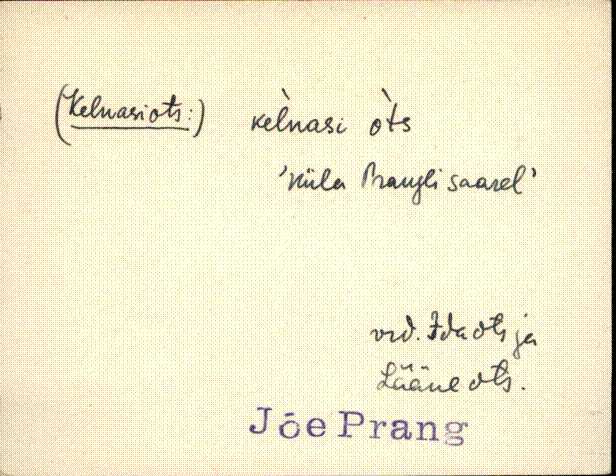 (Kelnasiots:) kèlnasi òts
'küla Prangli saarel'
vrd. Idaots ja
Lääneots.
Jõe Prang